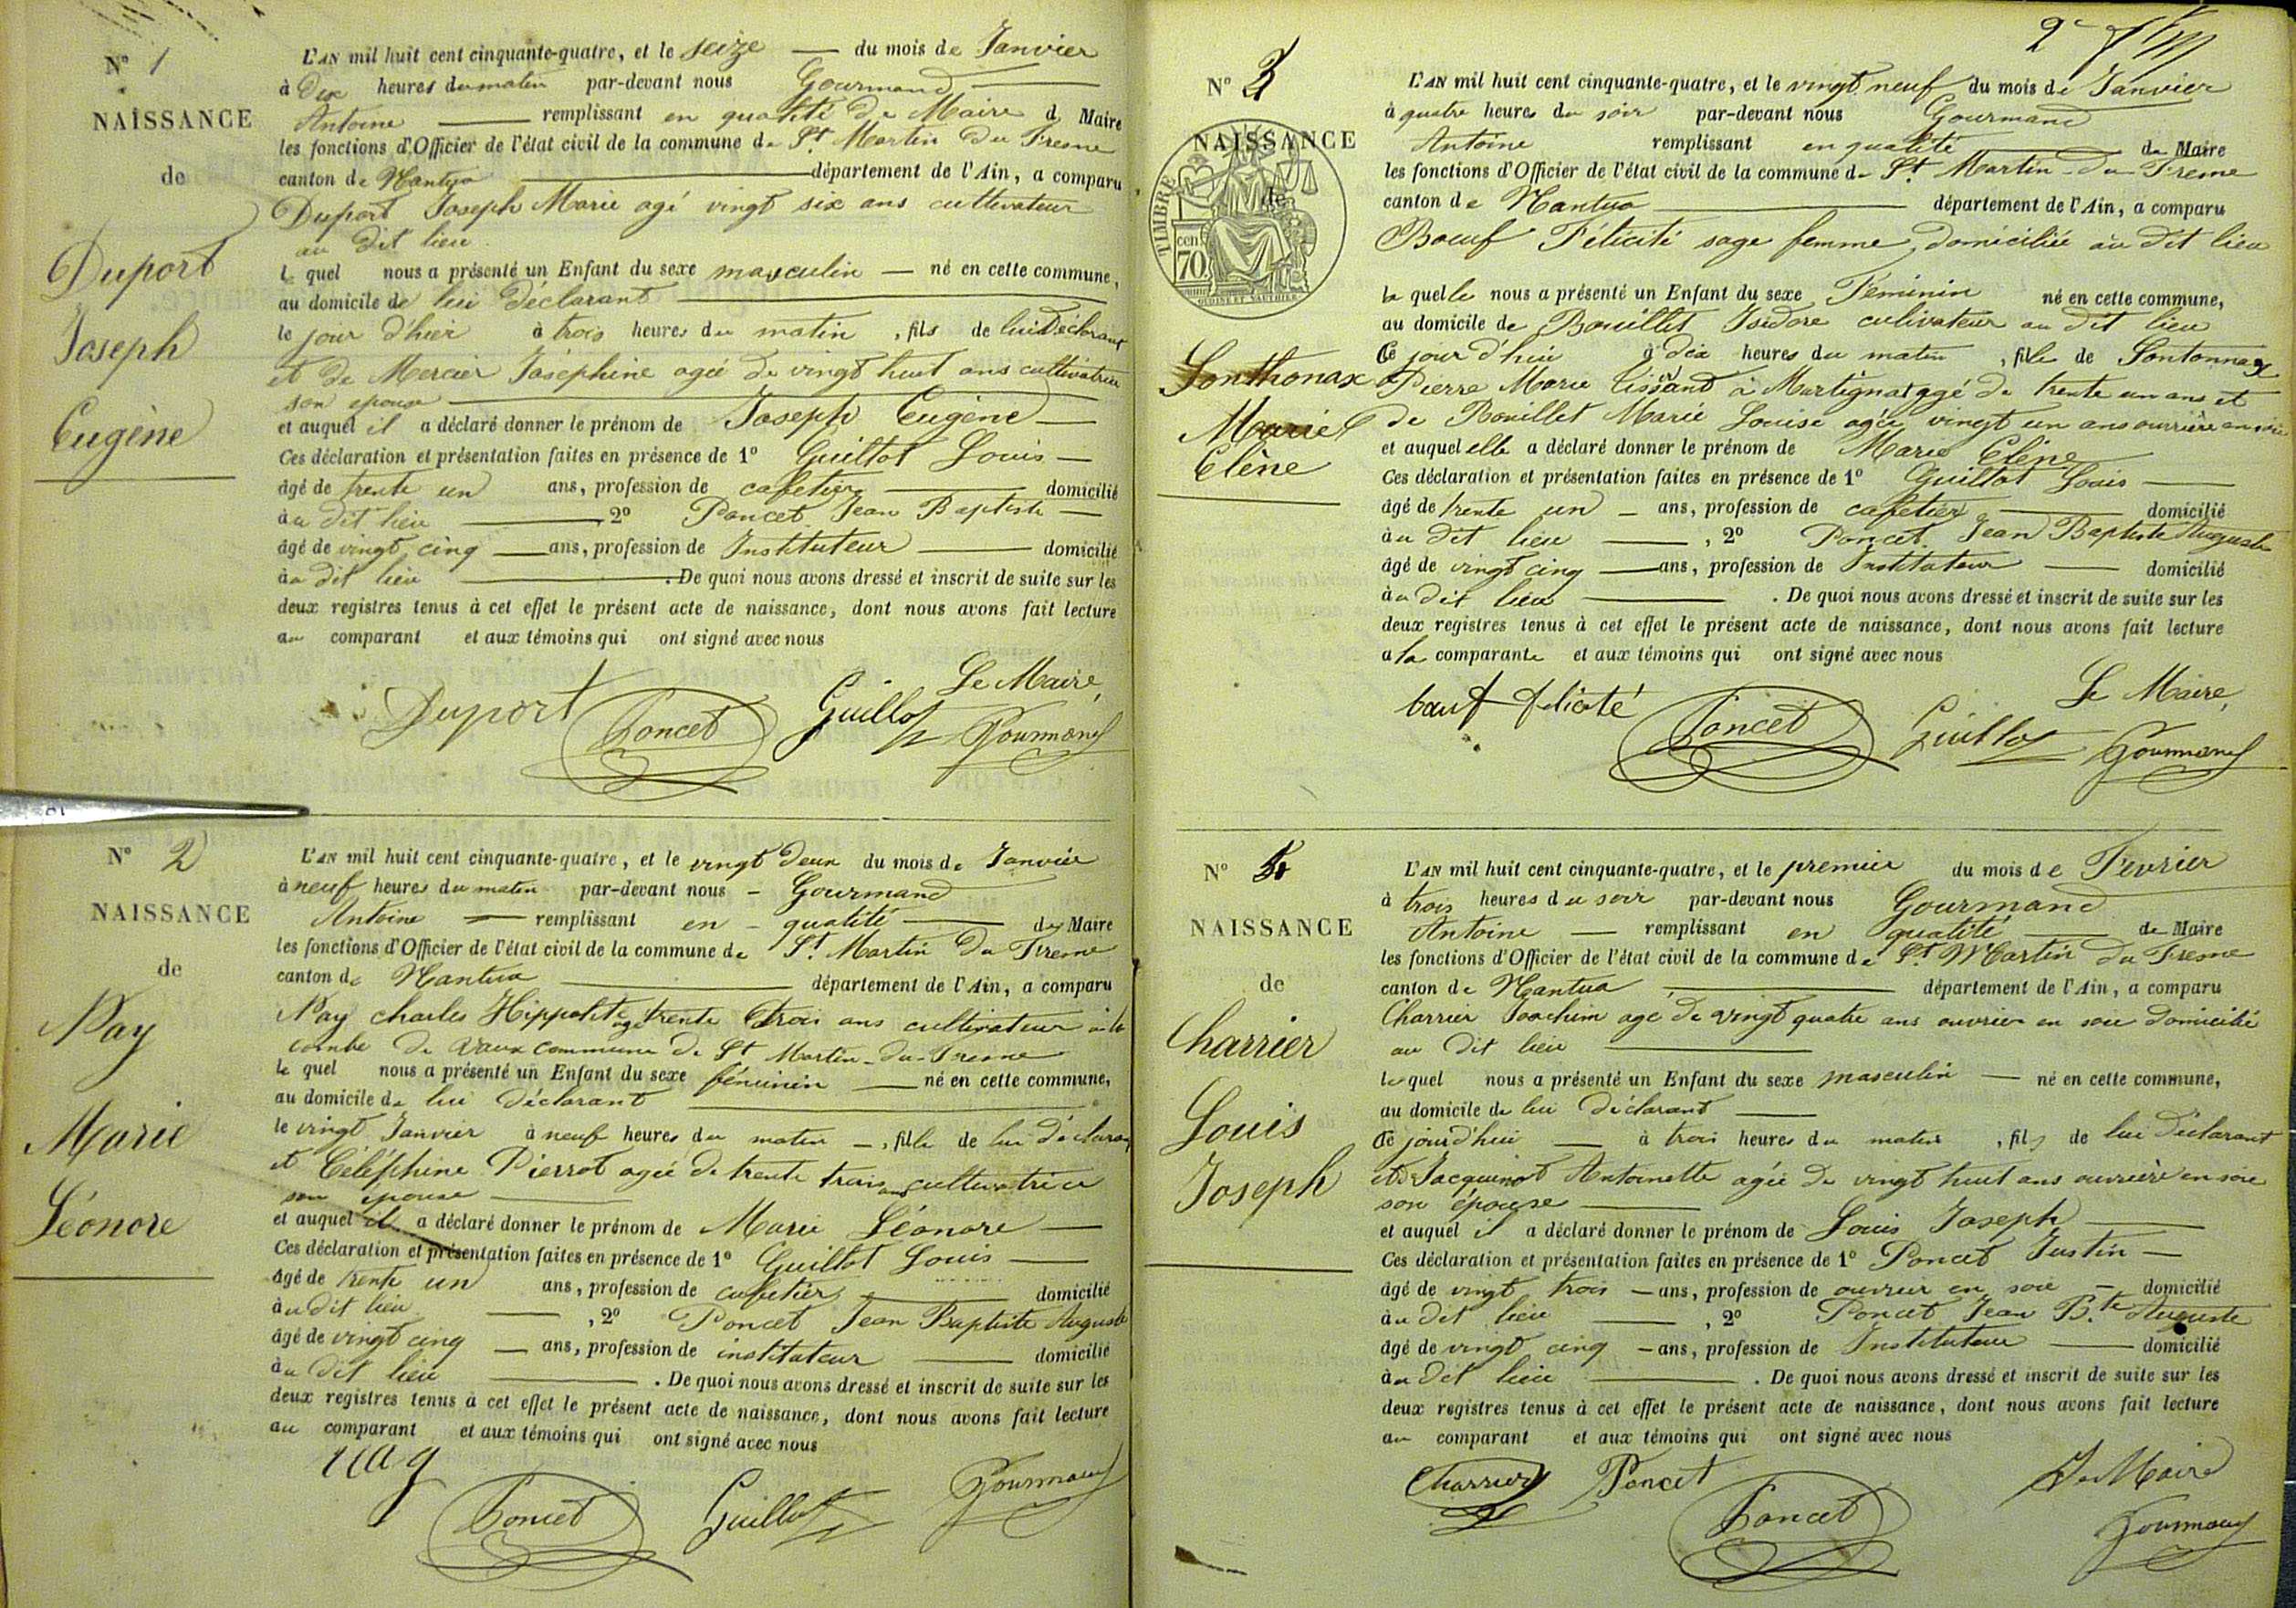 N° 1
NAISSANCE
de
Duport
Joseph
Eugène
L'AN mil huit cent cinquante-quatre, et le seize du mois de Janvier
à Dix heures du matin par-devant nous Gourmand
Antoine remplissant en qualité de Maire d Maire
les fonctions d'Officier de l'état civil de la commune de St Martin Du Fresne
canton de Nantua département de l'Ain, a comparu
Duport Joseph Marie agé vingt six ans cultivateur
au dit lieu
le quel nous a présenté un Enfant du sexe masculin né en cette commune,
au domicile de lui Déclarant
le jour d'hier à trois heures du matin, fils de lui Déclarant
et de Mercier Joséphine agée de vingt huit ans cultivatrice
son epouse
et auquel il a déclaré donner le prénom de Joseph Eugène
Ces déclaration et présentation faites en présence de 1° Guillot Louis
âgé de trente un ans, profession de cafetier domicilié
au dit lieu 2° Poncet Jean Baptiste
âgé de vingt cinq ans, profession de Instituteur domicilié
au dit lieu . De quoi nous avons dressé et inscrit de suite sur les
deux registres tenus à cet effet le présent acte de naissance, dont nous avons fait lecture
au comparant et aux témoins qui ont signé avec nous
Le Maire,
Duport Poncet Guillot Gourmand
N° 2
NAISSANCE
de
Nay
Marie
Léonore
L'AN mil huit cent cinquante-quatre, et le vingt deux du mois de Janvier
à neuf heures du matin par-devant nous Gourmand
Antoine remplissant en qualité de Maire
les fonctions d'Officier de l'état civil de la commune de St Martin Du Fresne
canton de Nantua département de l'Ain, a comparu
Nay charles Hippolite agé trente trois ans cultivateur à la
combe de Vaux commune de St Martin-du-Fresne
le quel nous a présenté un Enfant du sexe féminin né en cette commune,
au domicile de lui Déclarant
le vingt Janvier à neuf heures du matin, fille de lui déclarant
et Céléphine Pierrot agée de trente trois ans cultivatrice
son épouse
et auquel il a déclaré donner le prénom de Marie Léonore
Ces déclaration et présentation faites en présence de 1° Guillot Louis
âgé de trente un ans, profession de cafetier domicilié
au dit lieu , 2° Poncet Jean Baptiste Auguste
âgé de vingt cinq ans, profession de instituteur domicilié
au dit lieu . De quoi nous avons dressé et inscrit de suite sur les
deux registres tenus à cet effet le présent acte de naissance, dont nous avons fait lecture
au comparant et aux témoins qui ont signé avec nous
nay
Poncet Guillot Gourmand
2e
N° 3
NAISSANCE
de
TIMBRE
cen. 70
Sonthonax
Marie
Elène
L'AN mil huit cent cinquante-quatre, et le vingt neuf du mois de Janvier
à quatre heures du soir par-devant nous Gourmand
Antoine remplissant en qualité de Maire
les fonctions d'Officier de l'état civil de la commune de St Martin-Du-Fresne
canton de Nantua département de l'Ain, a comparu
Boeuf Félicité sage femme, domiciliée au dit lieu
la quelle nous a présenté un Enfant du sexe Féminin né en cette commune,
au domicile de Bouillet Isidore cultivateur au dit lieu
Ce jour d'hui à dix heures du matin, fille de Sontonnax
Pierre Marie tisserand à Martignat agé de trente un ans et
de Bouillet Marie Louise agée vingt un ans ouvrière en soie
et auquel elle a déclaré donner le prénom de Marie Elène
Ces déclaration et présentation faites en présence de 1° Guillot Louis
âgé de trente un ans, profession de cafetier domicilié
au dit lieu , 2° Poncet Jean Baptiste Auguste
âgé de vingt cinq ans, profession de Instituteur domicilié
au dit lieu . De quoi nous avons dressé et inscrit de suite sur les
deux registres tenus à cet effet le présent acte de naissance, dont nous avons fait lecture
a la comparante et aux témoins qui ont signé avec nous
Le Maire,
bœuf félicité Poncet Guillot Gourmand
N° 4
NAISSANCE
de
Charrier
Louis
Joseph
L'AN mil huit cent cinquante-quatre, et le premier du mois de Février
à trois heures du soir par-devant nous Gourmand
Antoine remplissant en qualité de Maire
les fonctions d'Officier de l'état civil de la commune de St Martin du Fresne
canton de Nantua département de l'Ain, a comparu
Charrier Joachim agé de vingt quatre ans ouvrier en soie domicilié
au dit lieu
le quel nous a présenté un Enfant du sexe masculin né en cette commune,
au domicile de lui Déclarant
Ce jourd'hui à trois heures du matin, fils de lui Déclarant
et de Jacquinot Antoinette agée de vingt huit ans ouvrière en soie
son épouse
et auquel il a déclaré donner le prénom de Louis Joseph
Ces déclaration et présentation faites en présence de 1° Poncet Justin
âgé de vingt trois ans, profession de ouvrier en soie domicilié
au dit lieu , 2° Poncet Jean B.te Auguste
âgé de vingt cinq ans, profession de Instituteur domicilié
au dit lieu . De quoi nous avons dressé et inscrit de suite sur les
deux registres tenus à cet effet le présent acte de naissance, dont nous avons fait lecture
au comparant et aux témoins qui ont signé avec nous
Le Maire
Charrier Poncet Poncet Gourmand